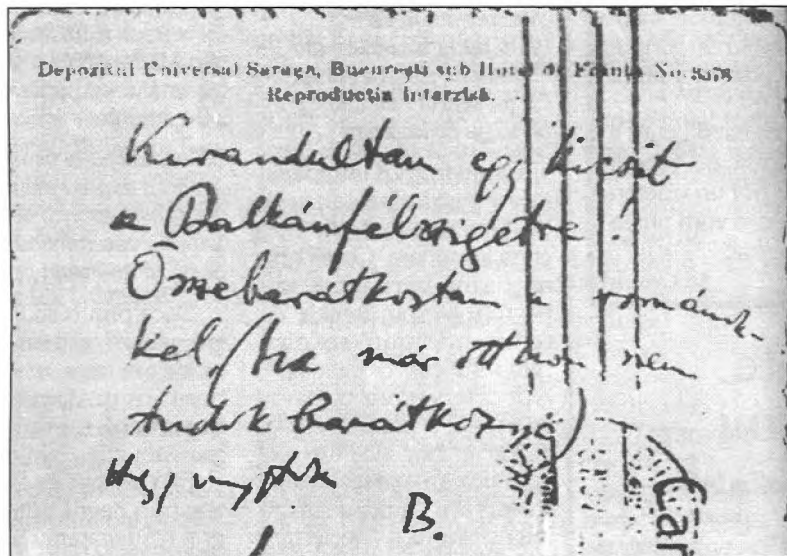 Depozitul Universal Saraga, București sub Hotel de Franța No. 8578
Reproducția interzisă.
Kirándultam egy kicsit
a Balkánfélszigetre!
Összebarátkoztam a románok-
kal, /ha már otthon nem
tudok barátkozni
B.
Car